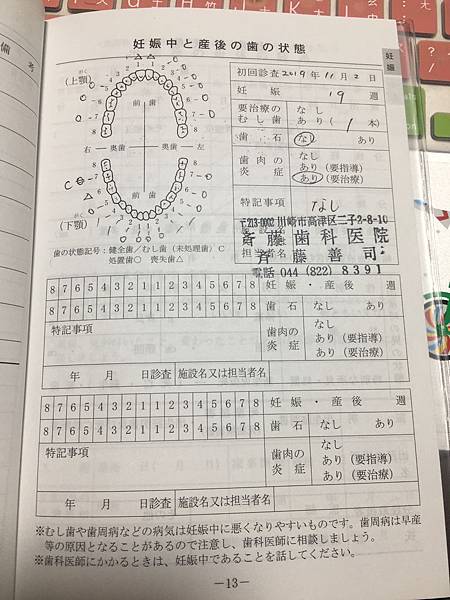 妊娠中と産後の歯の状態
妊娠
初回診査 2019年11月2日
妊娠 19 週
要治療の むし歯 なし あり( 1 本)
歯石 なし あり
歯肉の 炎症 なし あり(要指導) あり(要治療)
特記事項 なし
〒213-0002 川崎市高津区二子2-8-10
斉藤歯科医院
斉藤善司
電話 044 (822) 8391
(上顎)
前歯
右 奥歯 奥歯 左
前歯
(下顎)
歯の状態記号:健全歯/むし歯(未処置歯)C
処置歯○ 喪失歯△
8 7 6 5 4 3 2 1 1 2 3 4 5 6 7 8 妊娠・産後 週
8 7 6 5 4 3 2 1 1 2 3 4 5 6 7 8 歯石 なし あり
特記事項
歯肉の 炎症 なし あり(要指導) あり(要治療)
年 月 日診査 施設名又は担当者名
8 7 6 5 4 3 2 1 1 2 3 4 5 6 7 8 妊娠・産後 週
8 7 6 5 4 3 2 1 1 2 3 4 5 6 7 8 歯石 なし あり
特記事項
歯肉の 炎症 なし あり(要指導) あり(要治療)
年 月 日診査 施設名又は担当者名
※むし歯や歯周病などの病気は妊娠中に悪くなりやすいものです。歯周病は早産
等の原因となることがあるので注意し、歯科医師に相談しましょう。
※歯科医師にかかるときは、妊娠中であることを話してください。
—13—